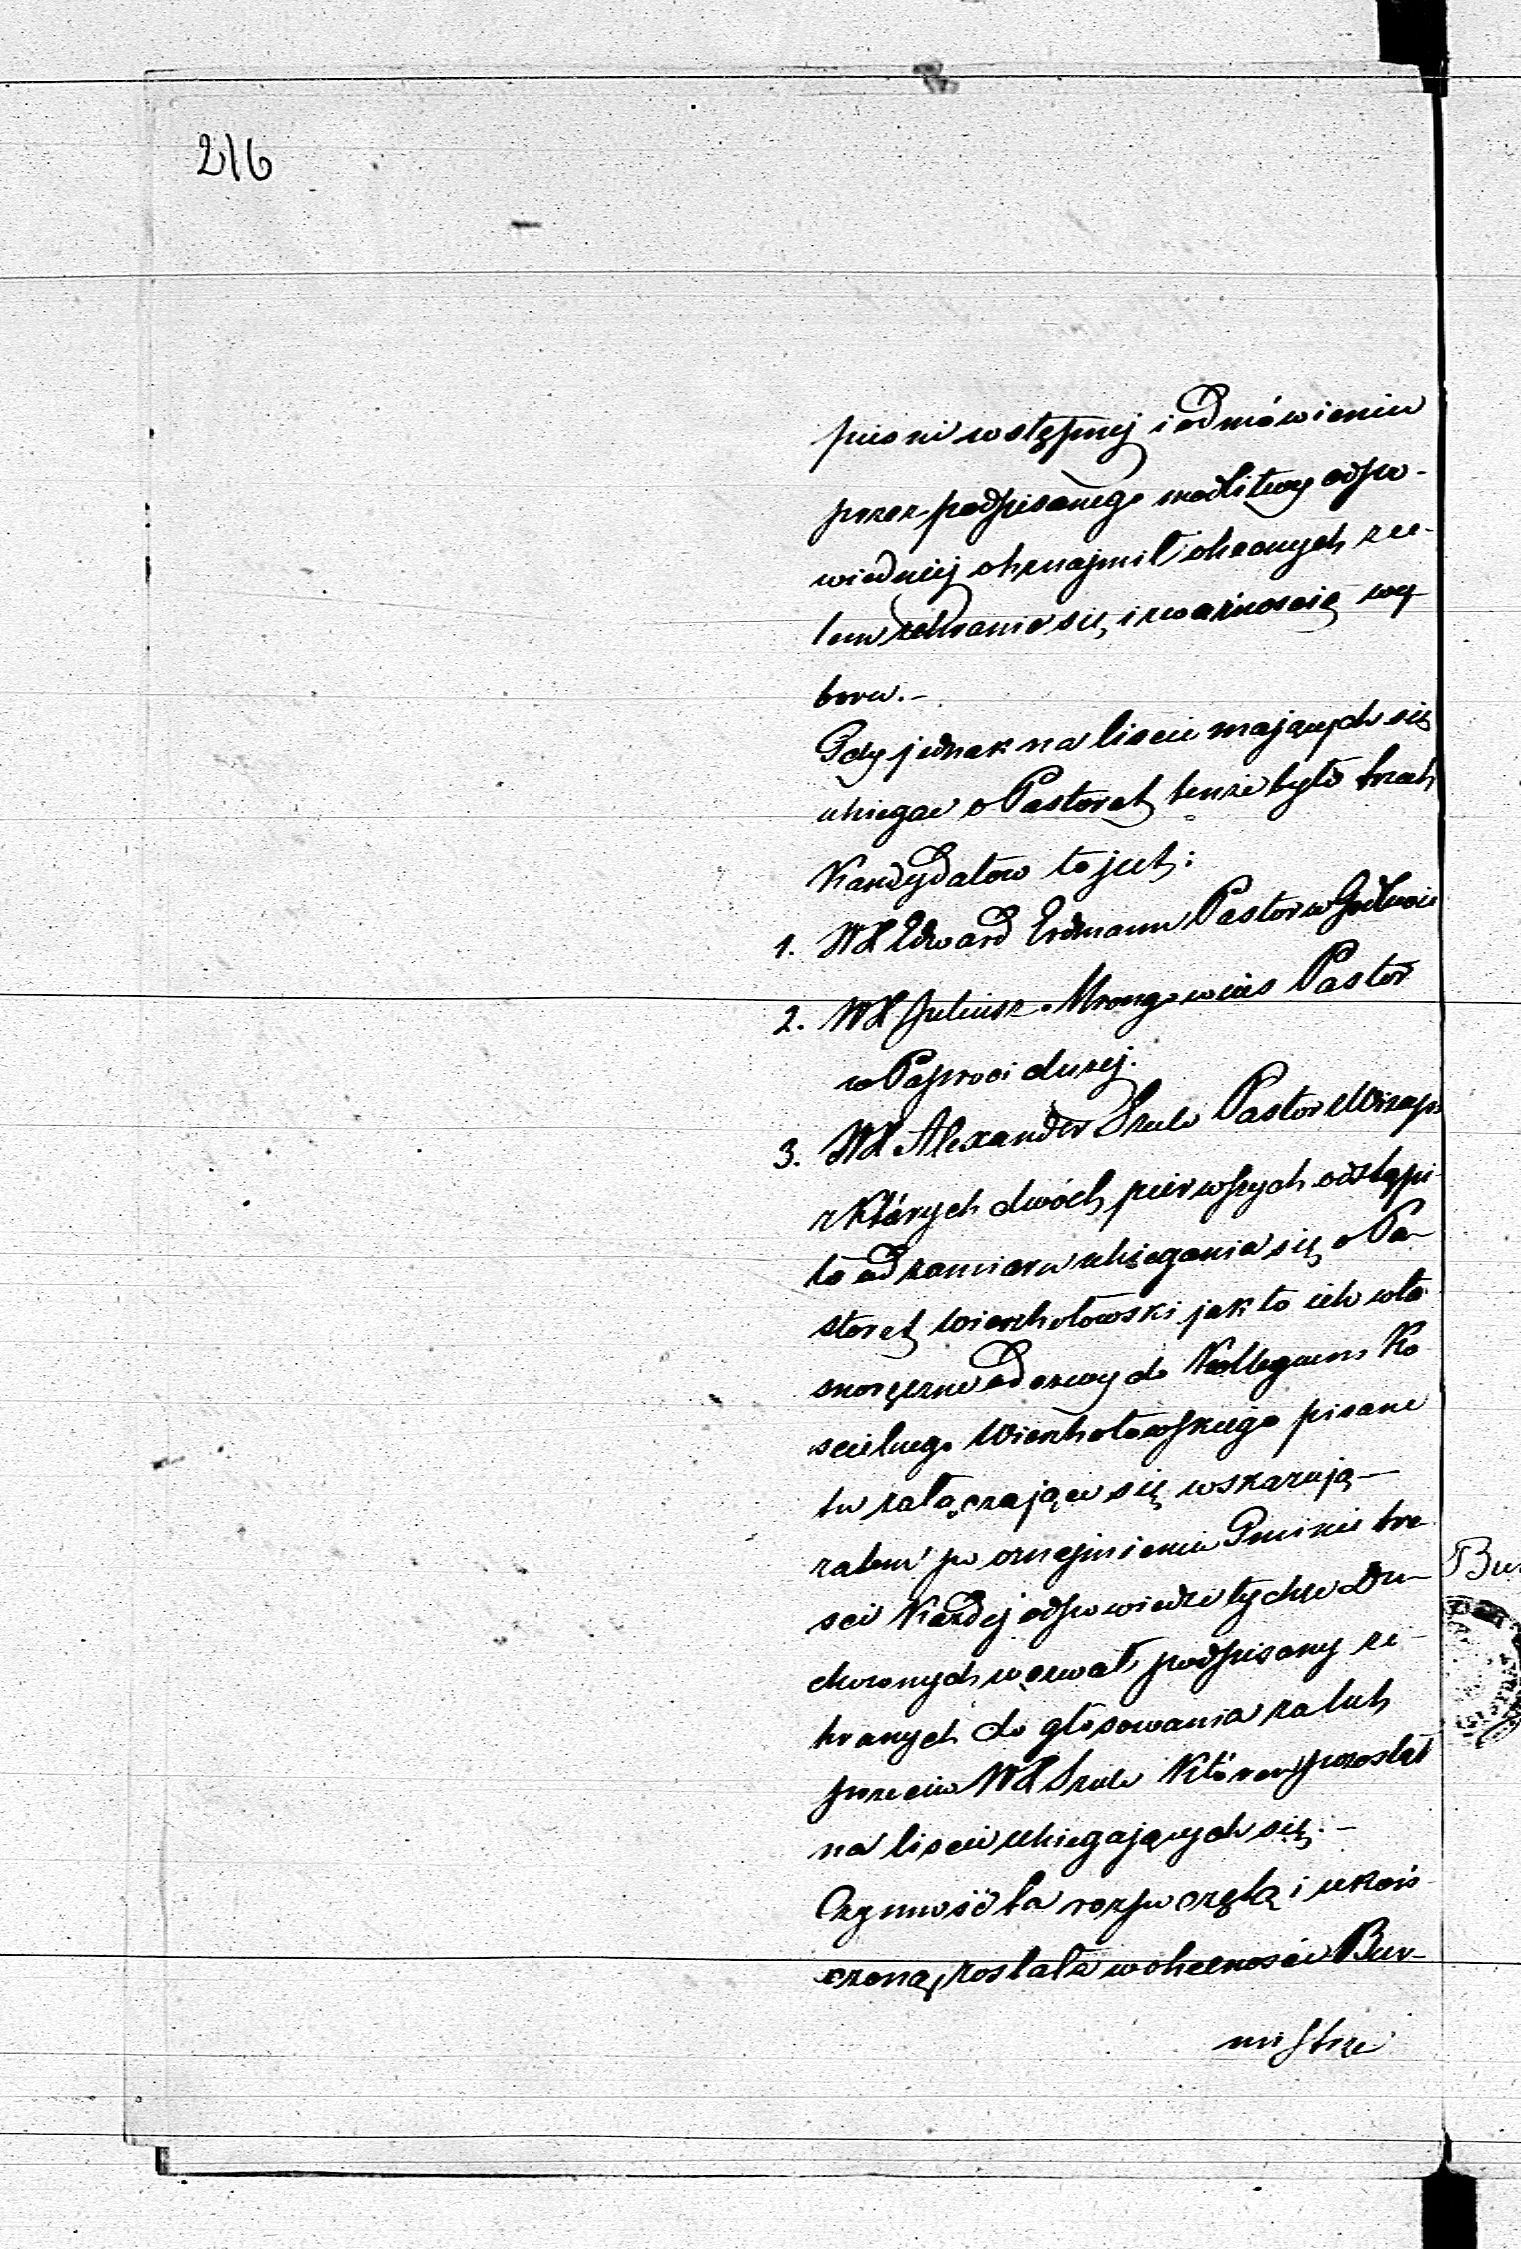 216
piesni wstępnej i odmówieniu
przez podpisanego modlitwy odpo-
wiedniej obznajmił obecnych z ce-
lem zebrania się i z ważnoscią wy-
boru. -
Gdy jednak na liscie mających się
ubiegac o Pastorat tenże było trzech
Kandydatow to jest:
1. WX Edward Erdmann Pastor w
2. WX Juliusz Mrongowius Pastor
w Paproci dużej.
3. WX Alexander Szulc Pastor Wizajn
z których dwóch pierwszych odstąpi-
ło od zamiaru ubiegania się o Pa-
storat Wierzbołowski jak to ich wła
snoręczne odezwy do Kollegium Ko
scielnego Wierzbołowskiego pisane
tu załączające się wskazują —
zatem po oznajmieniu Gminie tre
sci każdej odpowiedzi tychże Du-
chownych wezwał podpisany ze-
branych do głosowania za lub
przeciw WX Szulc który pozostał
na liscie ubiegających się. -
Czynność ta rozpoczętą i ukoń-
czoną została w obecności Bur-
mistrza
Bur